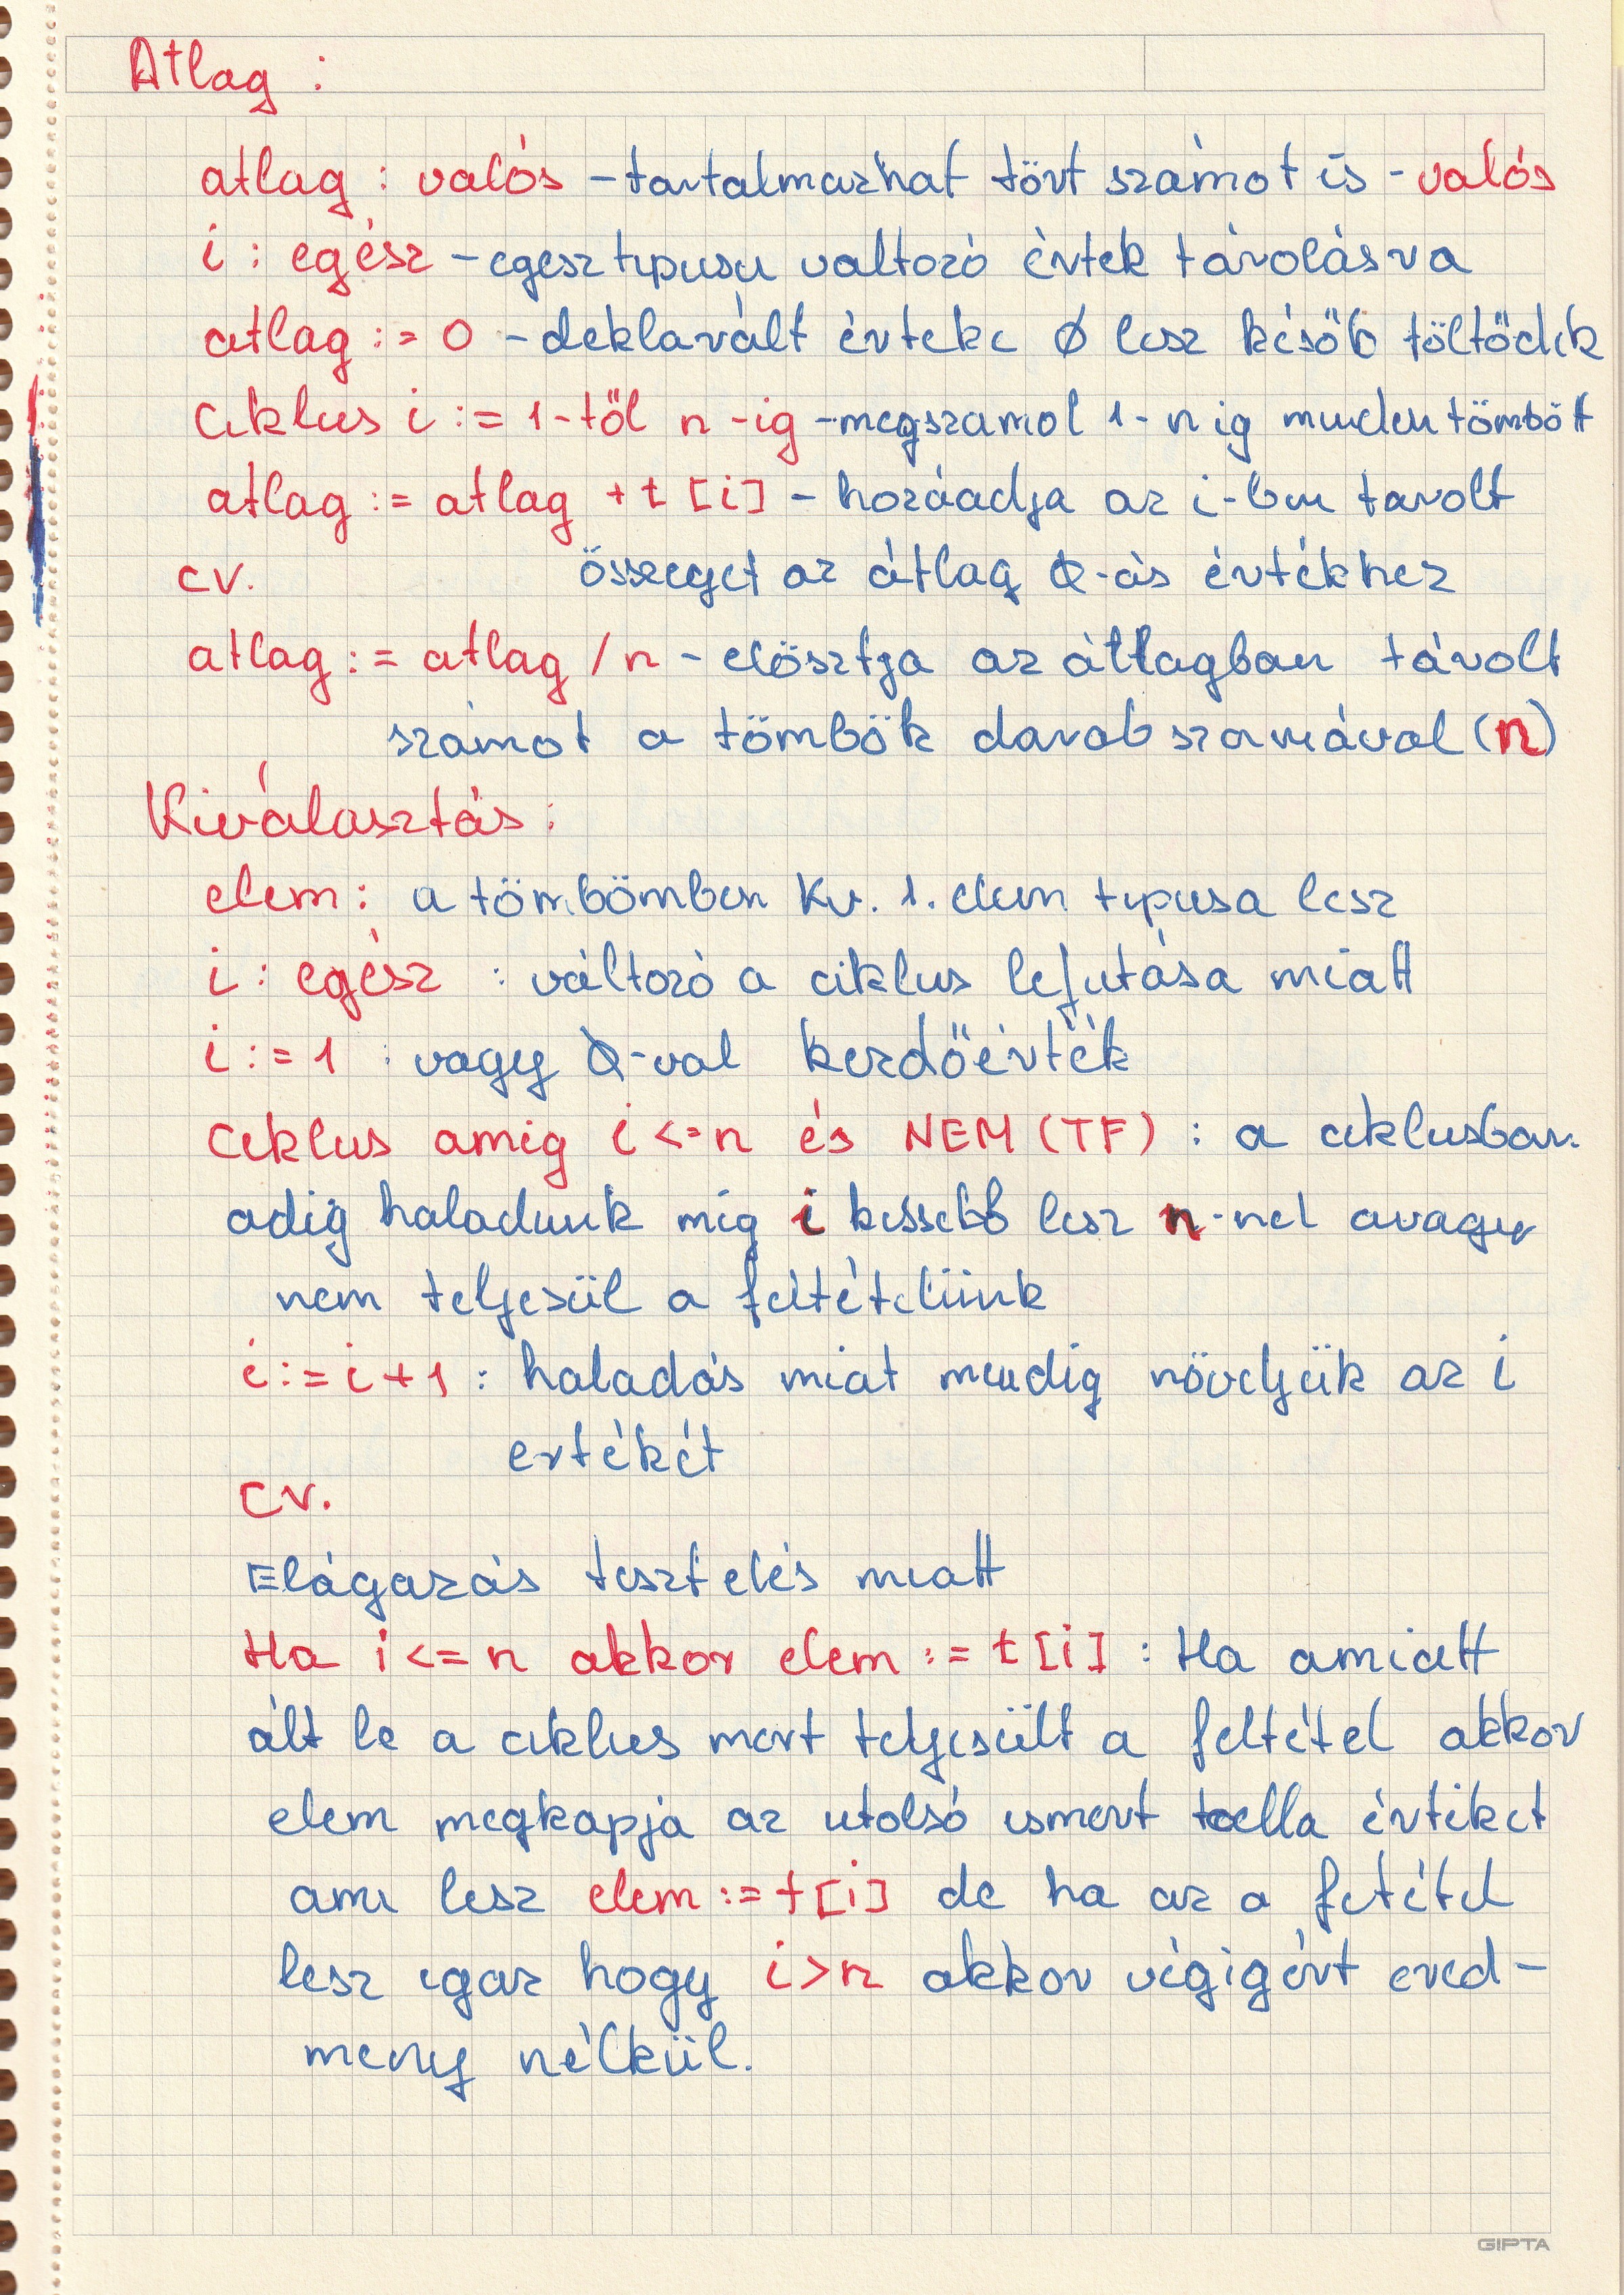 Átlag :
atlag : valós - tartalmazhat tört számot is - valós
i : egész - egesz tipusu valtozó értek tárolásra
atlag := 0 - deklarált érteke 0 lesz késöb töltödik
Ciklus i := 1-től n -ig - megszamol 1- n ig minden tömböt
atlag := atlag + t [i] - hozáadja az i-ben tarolt
cv. összeget az átlag 0-ás értékhez
atlag := atlag / n - elösztja az átlagban tárolt
számot a tömbök darab szamával (n)
Kiválasztás :
elem : a tömbömben lv. 1. elem tipusa lesz
i : egész : változó a ciklus lefutása miatt
i := 1 : vagy 0-val kezdőérték
Ciklus amig i <= n és NEM (TF) : a ciklusban
adig haladunk mig i kissebb lesz n-nel avagy
nem teljesül a feltételünk
i := i + 1 : haladás miat mindig növeljük az i
ertékét
cv.
Elágazás tesztelés miatt
Ha i <= n akkor elem := t [i] : Ha amiatt
ált le a ciklus mert teljesült a feltétel akkor
elem megkapja az utolsó ismert cella értéket
ami lesz elem := t [i] de ha az a fetétel
lesz igaz hogy i > n akkor végigért ered-
meny nélkül.
GIPTA